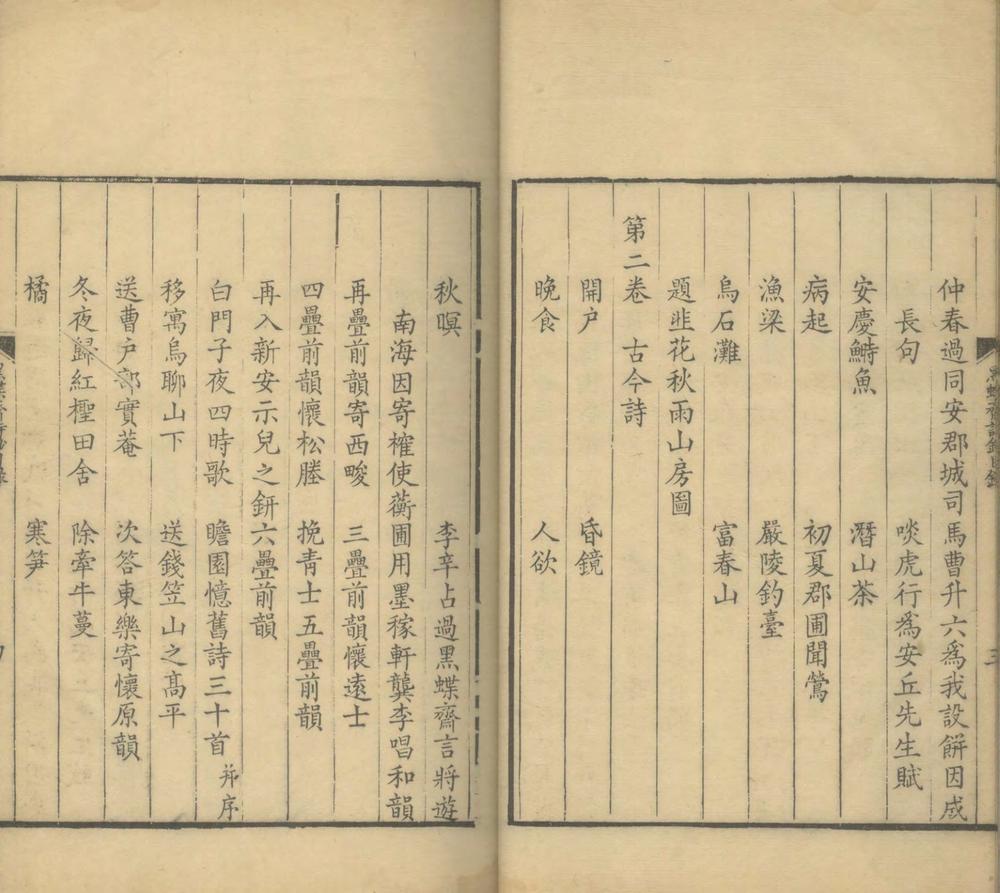 仲春過同安郡城司馬曹升六爲我設餅因成
長句　啖虎行爲安丘先生賦
安慶鰣魚　潛山茶
病起　初夏郡圃聞鶯
漁梁　嚴陵釣臺
烏石灘　富春山
題韭花秋雨山房圖
第二卷　古今詩
開戶　昏鏡
晚食　人欲
三
秋暝　李辛占過黑蝶齋言將遊
南海因寄榷使蘅圃用墨稼軒龔李唱和韻
再疊前韻寄西畯　三疊前韻懷遠士
四疊前韻懷松塍　挽靑士五疊前韻
再入新安示兒之錛六疊前韻
白門子夜四時歌　瞻園憶舊詩三十首 并序
移寓烏聊山下　送錢笠山之高平
送曹戶部實菴　次答東樂寄懷原韻
冬夜歸紅檉田舍　除牽牛蔓
橘　寒笋